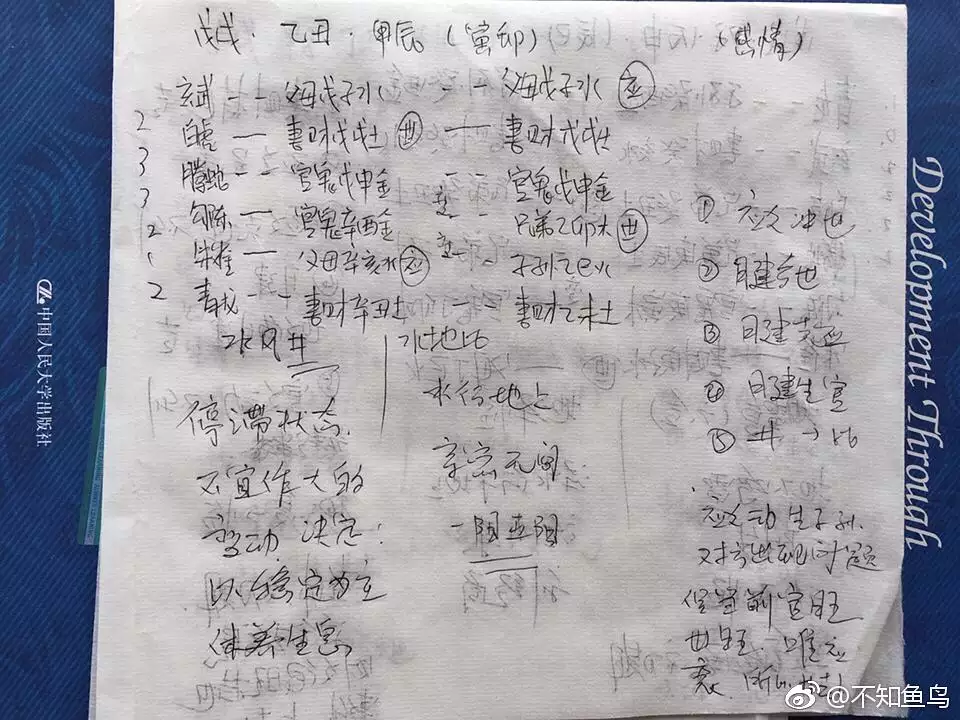 戊戌·乙丑·甲辰（寅卯）（感情）
玄武 -- 父母戊子水 -- 父母戊子水 应
2 白虎 — 妻财戊戌土 世 — 妻财戊戌土
3 腾蛇 -- 官鬼戊申金 -- 官鬼戊申金
3 勾陈 — 官鬼辛酉金 -- 兄弟乙卯木 世
2 朱雀 — 父母辛亥水 应 -- 子孙乙巳火
2 青龙 -- 妻财辛丑土 -- 妻财乙未土
水风井
停滞状态.
不宜作大的
变动 决定:
以稳定为主
休养生息
水地比
水行地上
亲密无间
一阳五阴
① 应爻冲世
② 日建合世
③ 日建克应
④ 日建生官
⑤ 井→比
应爻动生子孙.
对方出现问题
世旺. 唯应
中国人民大学出版社
Development Through
@不知鱼鸟